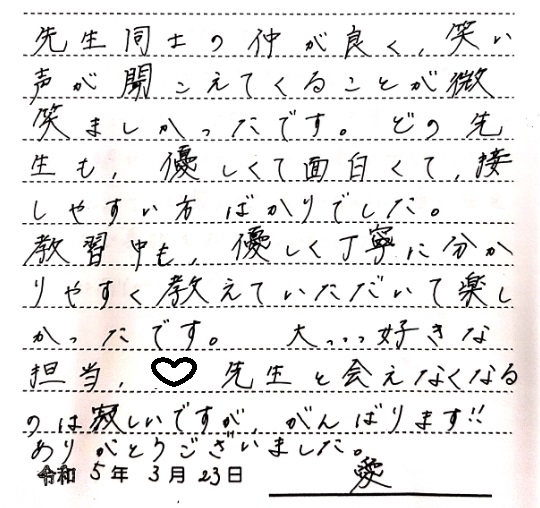 先生同士の仲が良く、笑い
声が聞こえてくることが微
笑ましかったです。どの先
生も、優しくて面白くて、接
しやすい方ばかりでした。
教習中も、優しく丁寧に分か
りやすく教えていただいて楽し
かったです。 大っっっ好きな
担当、♡先生と会えなくなる
のは寂しいですが、がんばります!!
ありがとうございました。
令和 5年 3月 23日 愛